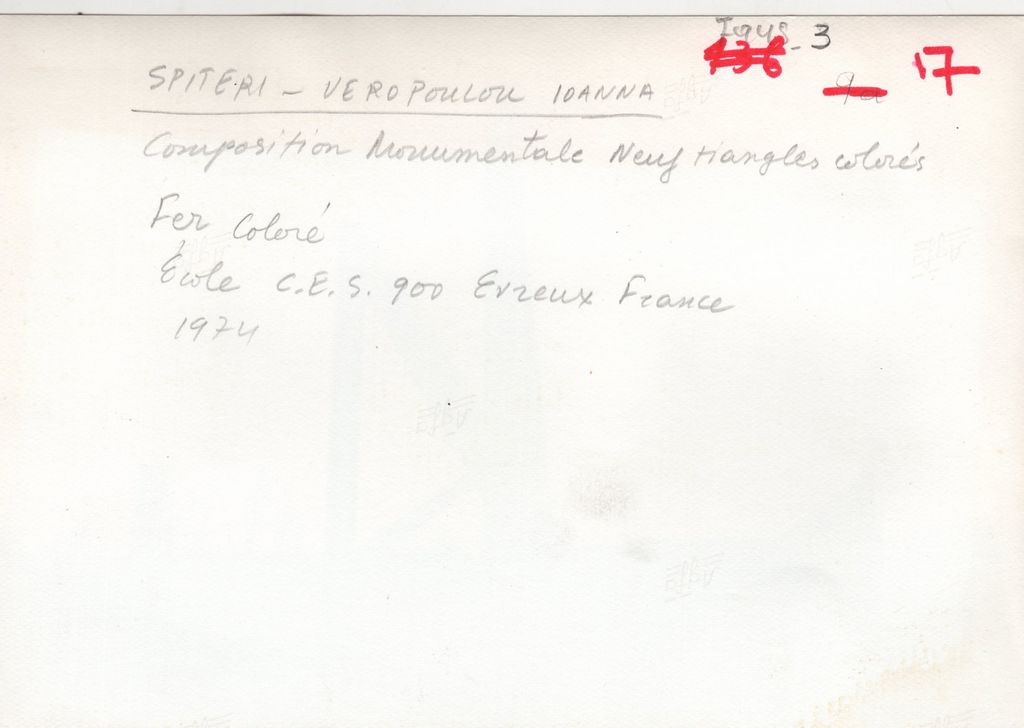 3
136
17
9a
SPITERI - VEROPOULOU IOANNA
Composition Monumentale Neuf tiangles colorés
Fer Coloré
École C.E.S. 900 Evreux France
1974